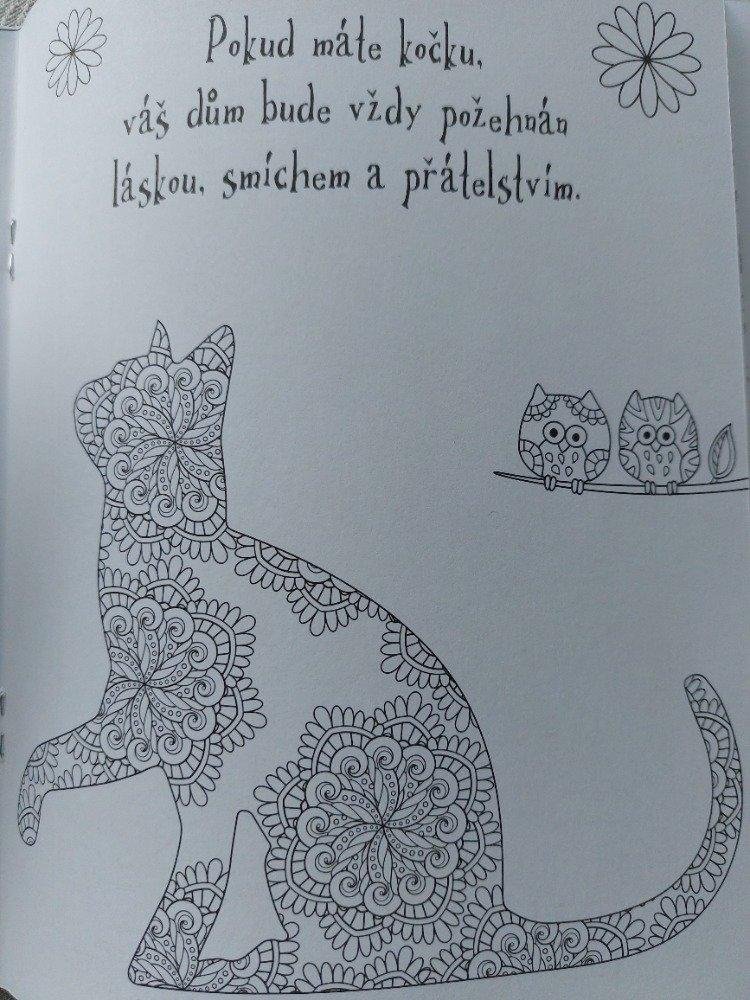 Pokud máte kočku,
váš dům bude vždy požehnán
láskou, smíchem a přátelstvím.